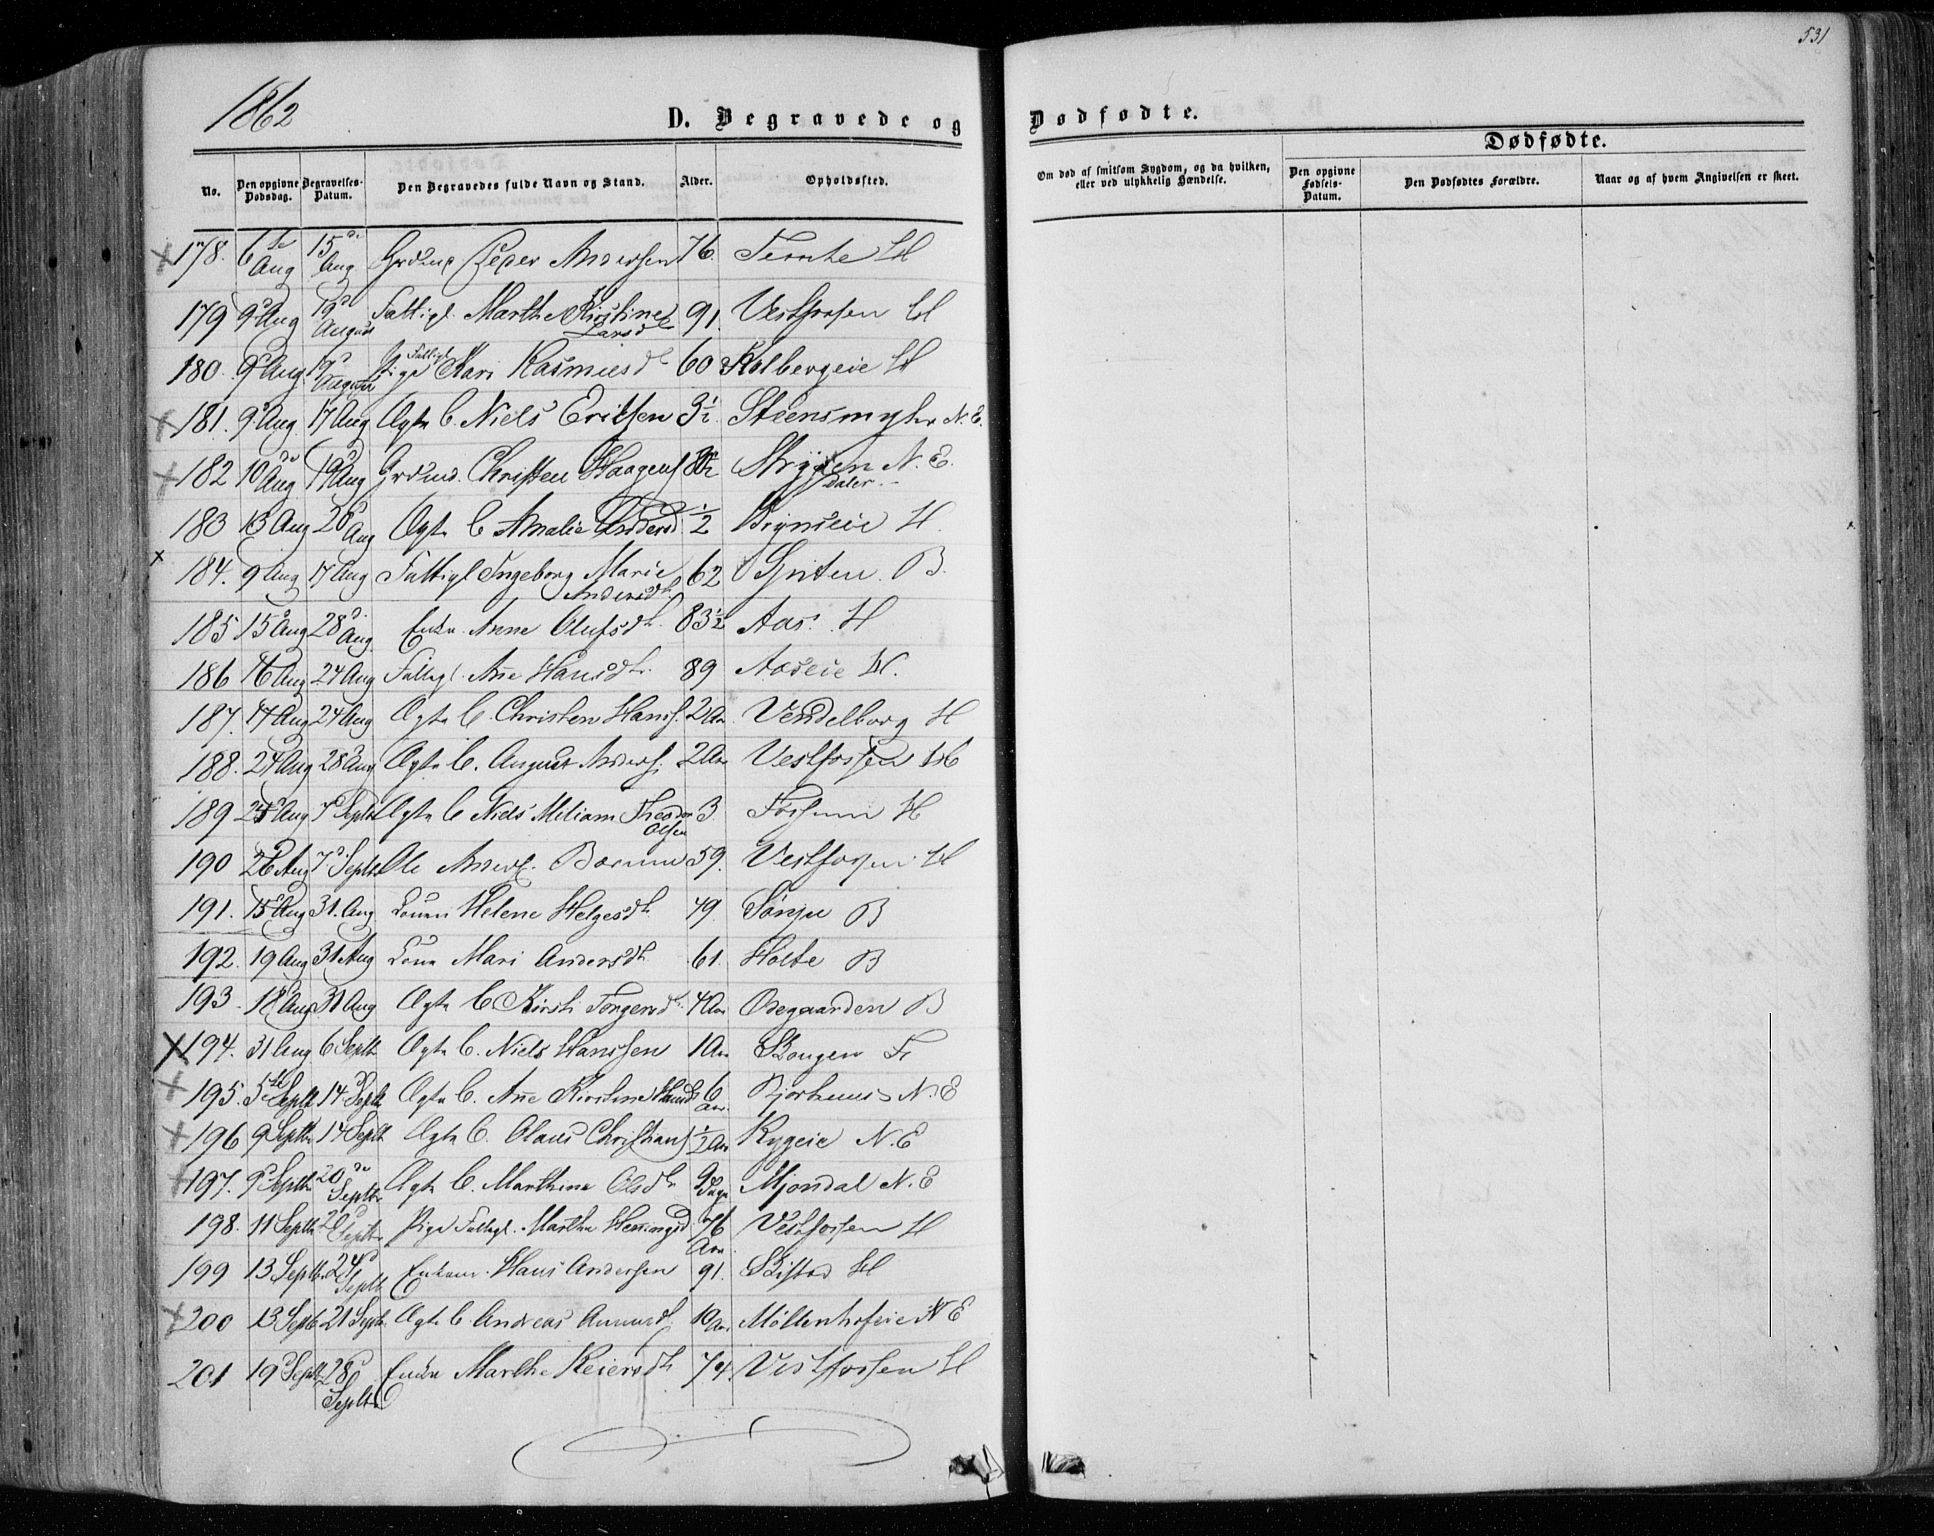 531
1862
D. Begravede og Dødfødte.
Dødfødte.
No.
Den opgivne Dødsdag.
Begravelses-Datum.
Den Begravedes fulde Navn og Stand.
Alder.
Opholdssted.
Om død af smitsom Sygdom, og da hvilken, eller ved ulykkelig Hændelse.
Den opgivne Fødsels-Datum.
Den Dødfødtes Forældre.
Naar og af hvem Angivelsen er skeet.
178. 6te Aug 15de Aug Peder Andersen 76. H
179 9d Aug 19de August Fattigl. Marthe Kirstine Larsd 91. Vestfossen H
180. 9d Aug. 19d August Fattigl Pige Kari Rasmusd 60 Kolbergeie H
181. 9d Aug. 17 Aug Ægte B. Niels Eriksen 3½. Steensmyhr N. E.
182 10de Aug 19d Aug Christen Haagens Stryken daler N. E.
183 13 Aug 28d Aug Ægte B Amalie Andersd ½ Brynseie H.
184. 9 Aug 17 Aug Fattigl Ingeborg Marie Andersdt. 62 Griten. B.
185 15d Aug 28d. Aug. Enke. Anne Olufsdt. 83½ Aas. H
186 16 Aug 24 Aug Fattigl. Ane Hansdt. 89 Aaseie H.
187. 17 Aug 24 Aug Ægte B. Christen Hans. 2 Aar Vendelborg H
188. 24 Aug 28 Aug Ægte B. August Anders. 2 Aar Vestfossen H
189 25 Aug 7d Septb Ægte B Niels Miliam Theodor Olsen 3. Fossum H
190 26 Aug 7d. Septb Ole Anders. Bærum 59. Vestfossen. H
191. 15d Aug 31. Aug. Konen Helene Helgesdt. 49. Sønju B
192. 19 Aug 31 Aug Kone Mari Andersdt 61. Holte B
193. 18d Aug 31 Aug Ægte B Kirsti Torgersdt. 4 Aar Ødegaarden B
194. 31 Aug 6 Septb Ægte B. Niels Hanssen 1 Aar Skougen F
195. 5te Septb 14d Septb Ægte B. Ane Kirstine Hansd 6 Aar. Bjørkenes N. E
196 9 Septb 14 Septb Ægte B. Olaus Christians ½ Aar Rygeie N. E
197. 9d Septb 20de Septb Ægte B. Marthine Olsdt. 9 Dage Mjøndal N. E
198. 11 Septb. 20d Septb Pige Fattigl. Marthe Henningsd 76 Aar. Vestfossen H
199 13 Septb. 24d Septb Enkem. Hans Andersen 91. Skistad H
200 13 Septb 21 Septb. Ægte B. Andreas 10 Aar Møllenhofeie N E
201 19d Septb 28d Septb Enke Marthe Reiersdt 74. Vestfossen H